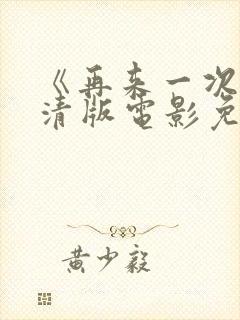 《再来一次
清版電影免
黄少毅